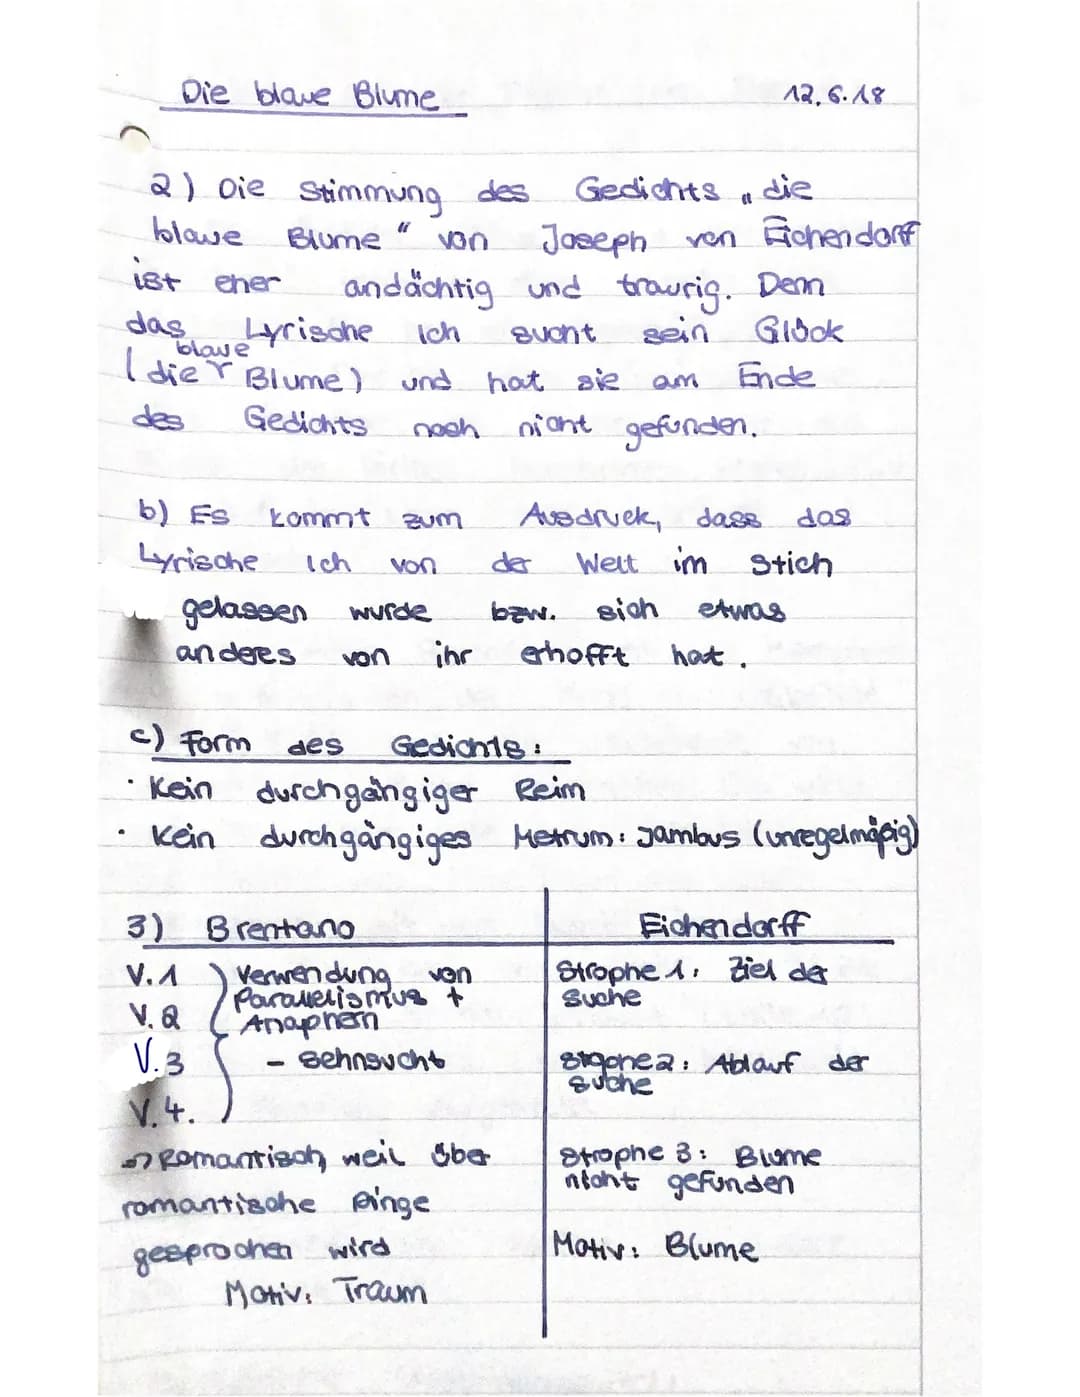 Die blaue Blume 12.6.18
2) Die Stimmung des Gedichts „die
blaue Blume" von Joseph von Eichendorff
ist eher andächtig und traurig. Denn
das Lyrische Ich sucht sein Glück
blaue
(die Blume) und hat sie am Ende
des Gedichts noch nicht gefunden.
b) Es kommt zum Ausdruck, dass das
Lyrische Ich von der Welt im Stich
gelassen wurde bzw. sich etwas
anderes von ihr erhofft hat.
c) Form des Gedichts:
· Kein durchgängiger Reim
· Kein durchgängiges Metrum: Jambus (unregelmäßig)
3) Brentano
V.1 Verwendung von
Parallelismus +
V.2 Anaphern
V.3 - Sehnsucht
V.4.
=> Romantisch, weil über
romantische Dinge
gesprochen wird
Motiv: Traum
Eichendorff
Strophe 1: Ziel der
Suche
Strophe 2: Ablauf der
Suche
Strophe 3: Blume
nicht gefunden
Motiv: Blume